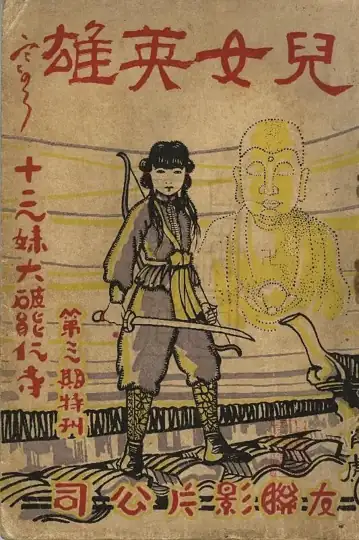 兒女英雄
十三妹大破能仁寺
第三期特刊
友聯影片公司